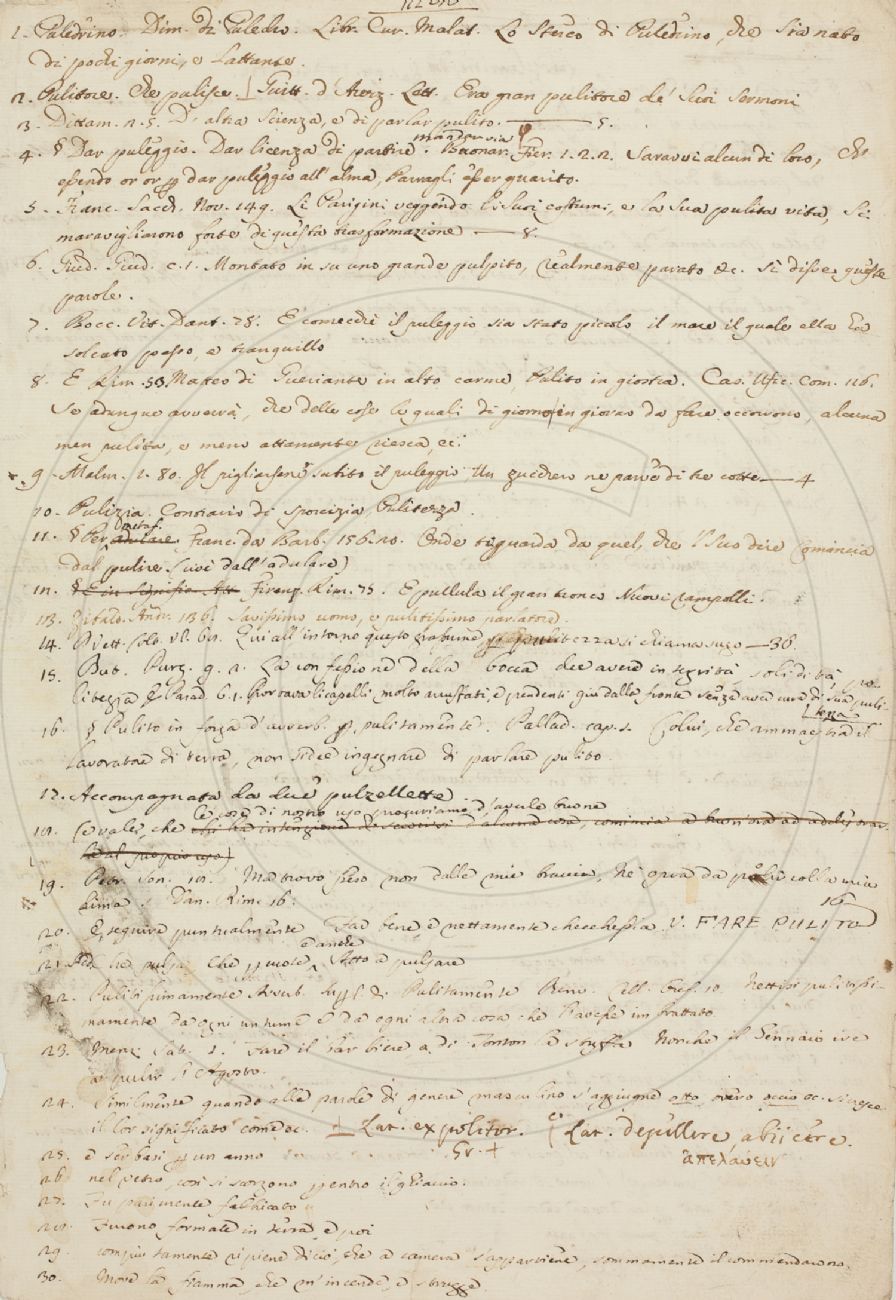 1. Puledrino. Dim. di Puledro. Libr. Cur. Malat. Lo sterco di Puledrino, che sia nato
di pochi giorni, e lattante.
2. Pulitore. Che pulisce. Guitt. d'Arez. Lett. Era gran pulitore de' suoi sermoni
3. Dittam. 2. 5. D'altra scienza, e di parlar pulito. 5.
4. § Dar puleggio. Dar licenza di partire. mandar via Buonar. Fier. 1. 2. 2. Saravvi alcun di loro, che
essendo or or p dar puleggio all'alma, Parragli esser guarito.
5. Franc. Sacch. Nov. 149. Li Parigini veggendo li suoi costumi, e la sua pulita vita, si
maravigliarono forte di questa trasformazione 8.
6. Guid. Giud. c. 1. Montato in su uno grande pulpito, realmente parato &c. si disse queste
parole.
7. Bocc. Vit. Dant. 78. E comecchè il puleggio sia stato piccolo il mare il quale ella ha
solcato passo, e tranquillo
8. E Rim. 53. Matteo di Gueriante in alto carme, Pulito in giostra. Cas. Ufic. com. 116.
Se adunque avverrà, che delle cose le quali di giorno in giorno da fare occorrono, alcuna
men pulita, e meno attamente riesca, ec.
9. Malm. 1. 80. Il pigliarsene subito il puleggio Un zucchero ne parve di tre cotte 4
10. Pulizia. Contrario di sporcizia Pulitezza.
11. § Per metaf. Franc. da Barb. 156. 20. Onde ti guarda da quel, che 'l suo dire Comincia
dal pulire (cioè dall'adulare)
12. § E in signific. Att. Firenz. Rim. 75. E pullula il gran tronco Nuovi rampolli.
13. Zibald. Andr. 136. Savissimo uomo, e pulitissimo parlatore.
14. Pvett. Colt. Vl. 60. Quivi all'intorno questo grassume pulitezza si chiama sugo 36.
15. But. Purg. 9. 2. La confessione della bocca dee avere integrità, solidità, pu-
litezza E Parad. 6. 1. Portava li capelli molto arruffati, e pendenti giù dalla fronte senza aver cura di sua puli-
tezza
16. § Pulito in forza d'avverb. p. pulitamente. Pallad. cap. 1. Colui, che ammaestra il
lavoratore di terra, non si dee ingegnare di parlare pulito.
17. Accompagnata da due pulzellette
18. (e vale, che le cose di nostro uso proccuriamo d'averle buone
19. Petr. Son. 18. Ma trovo peso non dalle mie braccia, Nè opra da polir colla mia
lima. Dan. Rim. 16. 16
20. Eseguire puntualmente Far bene, e nettamente checchessia. V. FARE PULITO
21. Che puote, e anche Atto a pulsare
22. Pulitissimamente Avverb. Superl. di Pulitamente Benv. Cell. Oref. 10. Nettisi pulitissi-
mamente da ogni untume e da ogni altra cosa che l'avesse imbrattato
23. Menz. Sat. 1. Fare il barbiere a. di Tonton la stuffa Norchè il Gennaio ire
a pulir l'Agosto.
24. Similmente quando alle parole di genere masculino s'aggiugne otto, ovvero occio ec. si cresce
il lor significato come ec. Lat. expolitor. Lat. depellere, abiicere.
Gr. + ἀπελαύειν
25. e serbasi p un anno
26. nel vetro, così si scorgono p entro il ghiaccio.
27. Fu parimente fabbricato
28. Furono formate in terra, e poi
29. compiutamente ripiene di ciò, che a camera s'appartiene, sommamente il commendarono.
30. Move la fiamma, che m'incende, e strugge